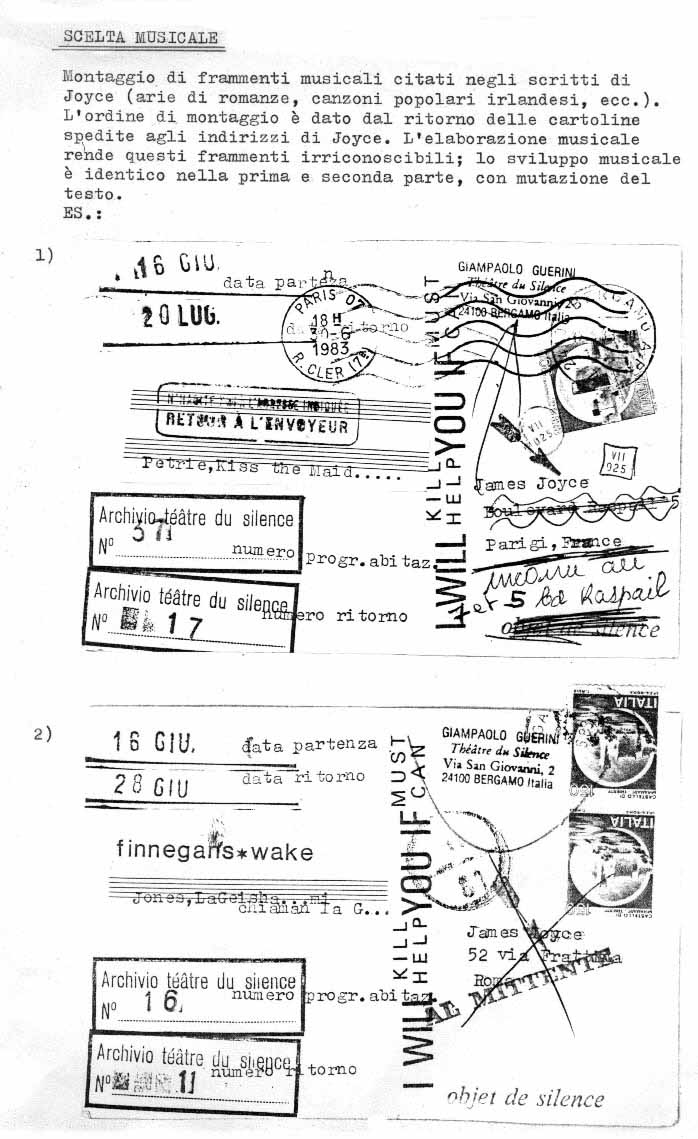 SCELTA MUSICALE
Montaggio di frammenti musicali citati negli scritti di
Joyce (arie di romanze, canzoni popolari irlandesi, ecc.).
L'ordine di montaggio è dato dal ritorno delle cartoline
spedite agli indirizzi di Joyce. L'elaborazione musicale
rende questi frammenti irriconoscibili; lo sviluppo musicale
è identico nella prima e seconda parte, con mutazione del
testo.
ES.:
1)
16 GIU.
data partenza
20 LUG.
data ritorno
PARIS 07
18 H
30-6
1983
R. CLER (7e)
RETOUR À L'ENVOYEUR
Petrie,Kiss the Maid.....
Archivio téâtre du silence
N° 371
numero progr.abitaz.
Archivio téâtre du silence
N° 17
numero ritorno
I WILL KILL YOU IF MUST
HELP
GIAMPAOLO GUERINI
Théâtre du Silence
Via San Giovanni, 2
24100 BERGAMO Italia
VII
025
VII
025
James Joyce
Boulevard Raspail 5
Parigi, France
inconnu au
5 Bd Raspail
objet de silence
2)
16 GIU.
data partenza
28 GIU
data ritorno
finnegans*wake
Jones,LaGeisha...mi
chiaman la G...
Archivio téâtre du silence
N° 16
numero progr.abitaz.
Archivio téâtre du silence
N° 11
numero ritorno
I WILL KILL YOU IF MUST
HELP CAN
GIAMPAOLO GUERINI
Théâtre du Silence
Via San Giovanni, 2
24100 BERGAMO Italia
ITALIA
150
CASTELLO DI
MIRAMARE TRIESTE
ITALIA
150
CASTELLO DI
MIRAMARE TRIESTE
James Joyce
52 via Frattina
Roma
AL MITTENTE
objet de silence